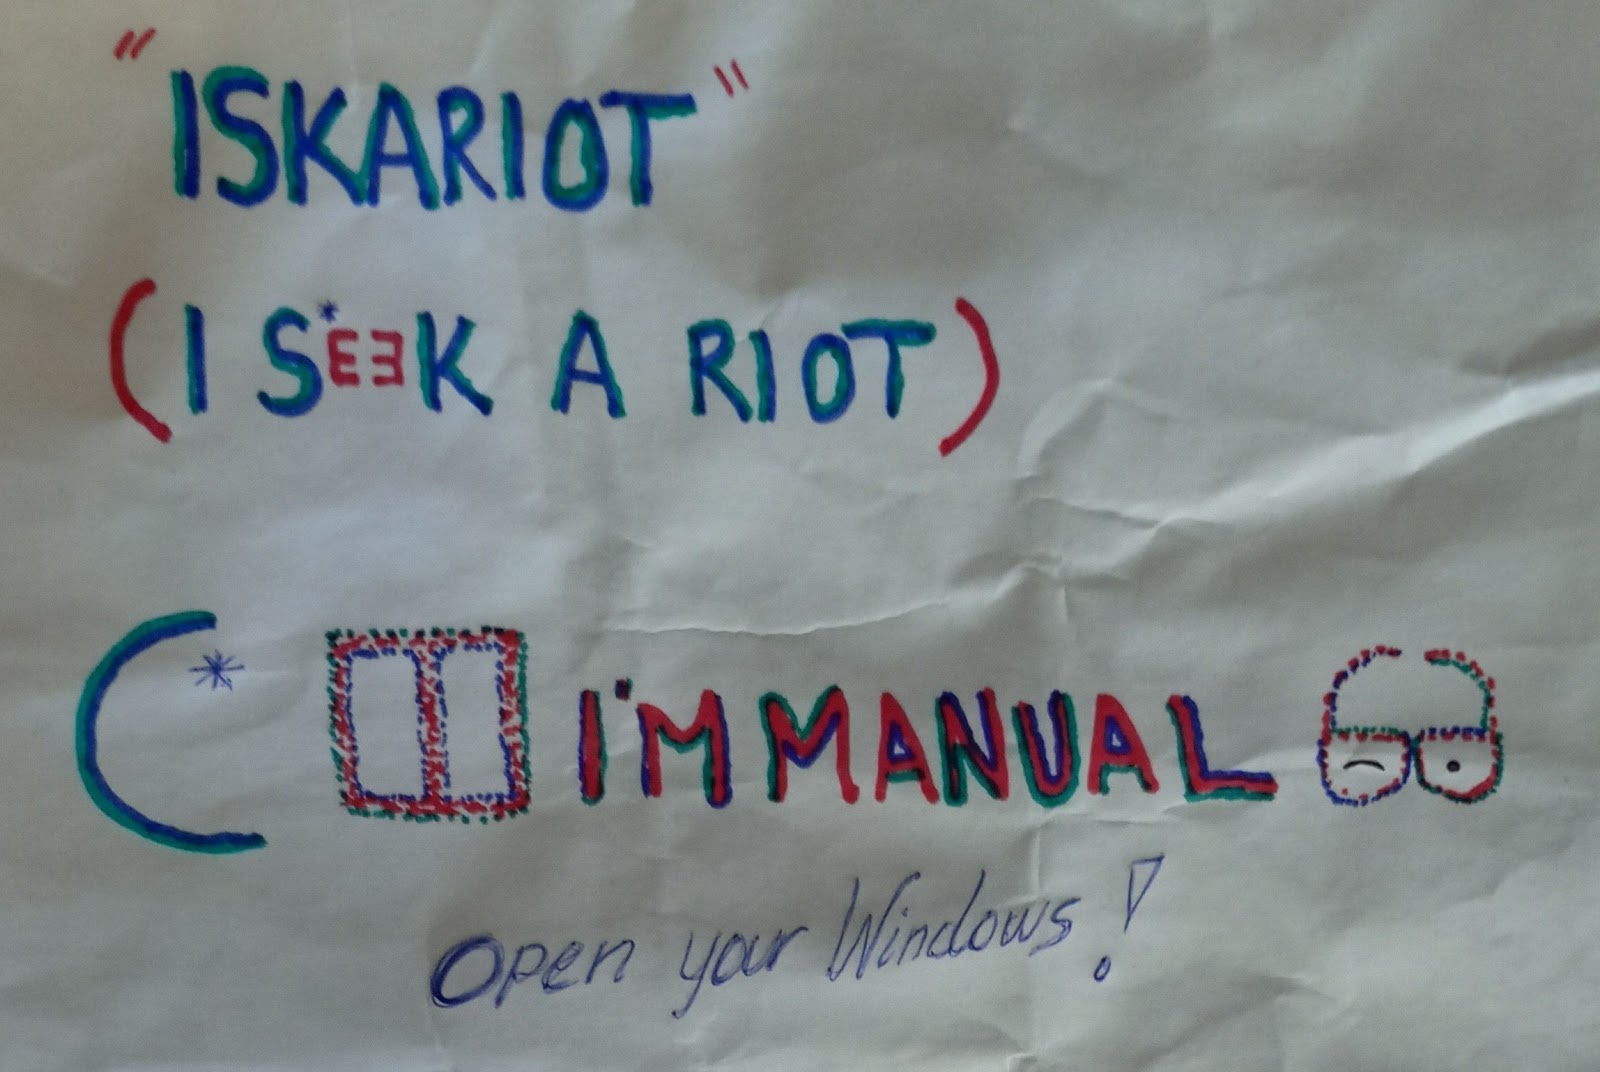 "ISKARIOT"
(I SEEK A RIOT)
I'M MANUAL
Open your Windows!